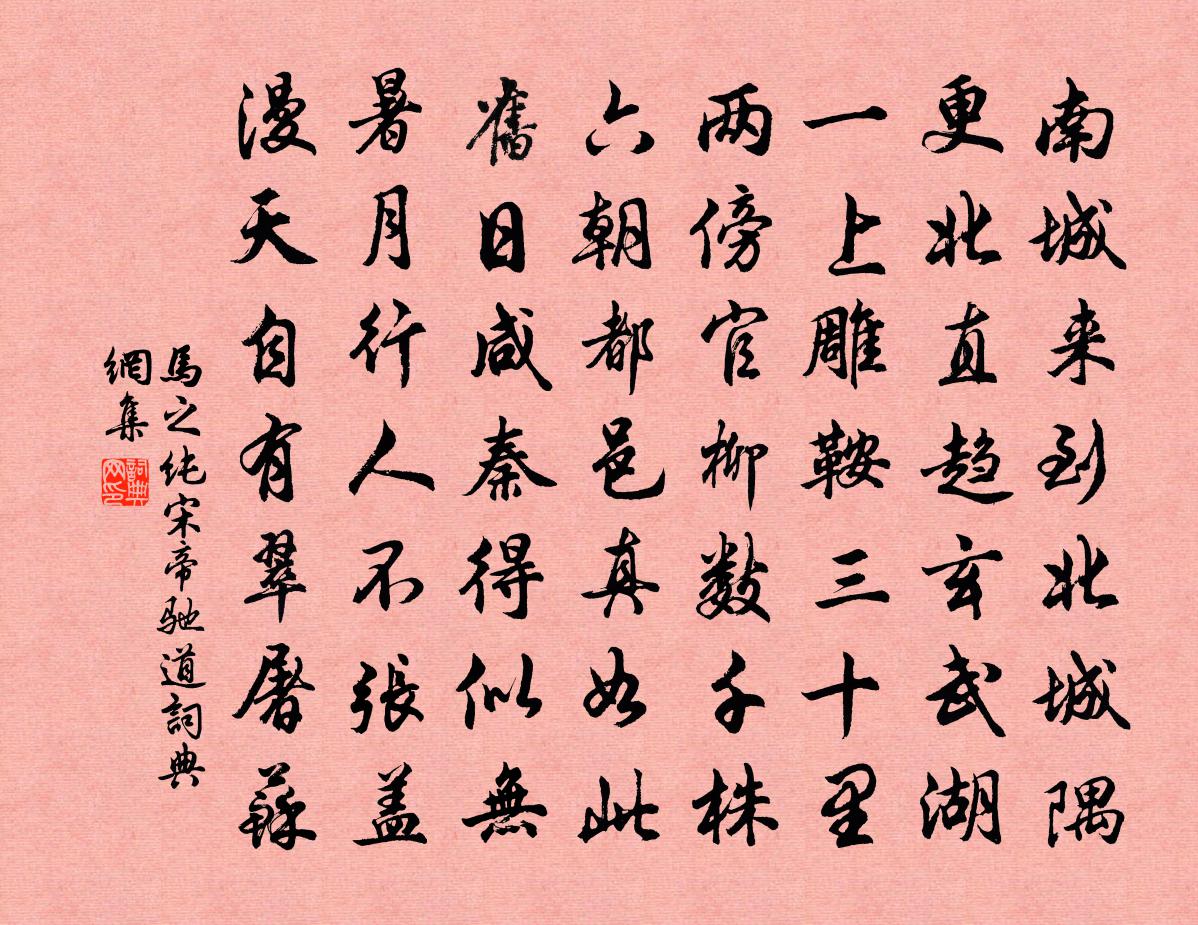 南城来到北城隅
更北直趋玄武湖
一上雕鞍三十里
两傍官柳数千株
六朝都邑真如此
旧日咸秦得似無
暑月行人不張盖
漫天自有翠屠蘇
馬之純宋帝馳道詞典
網集
詞典網印